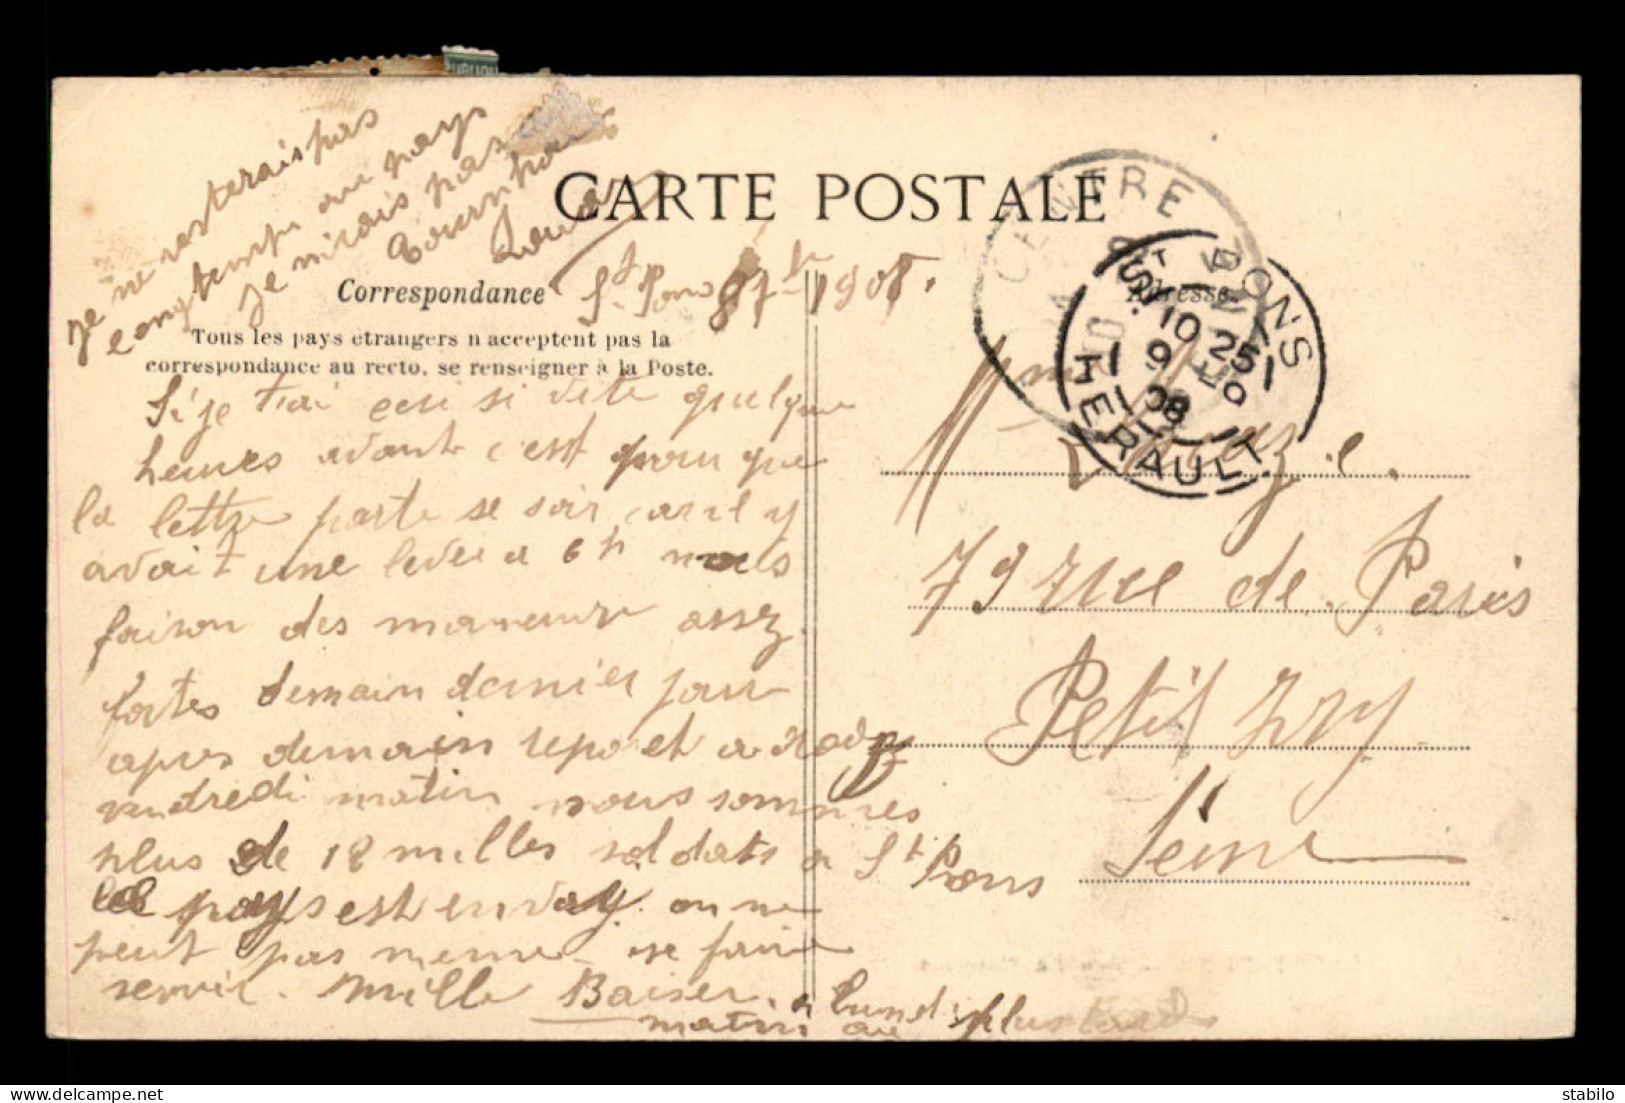 CARTE POSTALE
Correspondance
Tous les pays étrangers n'acceptent pas la
correspondance au recto, se renseigner à la Poste.
Adresse
St Pons 1908.
Si je t'ai ecri si vite quelque
heures avant c'est pour que
la lettre parte se soir car il y
avait une levee a 6 h nous
faison des maneuvre assez
fortes demain dernier jour
apres demain repos et a rodez
vendredi matin nous sommes
plus de 12 milles soldats a St Pons
le pays est envayi on ne
peut pas meme se faire
servir. Mille Baiser. a lundi
matin au plus tard
je ne resterais pas
longtemps au pays
je n'irais pas
Tournpas
Louis
CENTRE
ST PONS
10 25
9
08
HERAULT
Mme
79 rue de Paris
Petit Ivry
Seine
stabilo | Delcampe.net